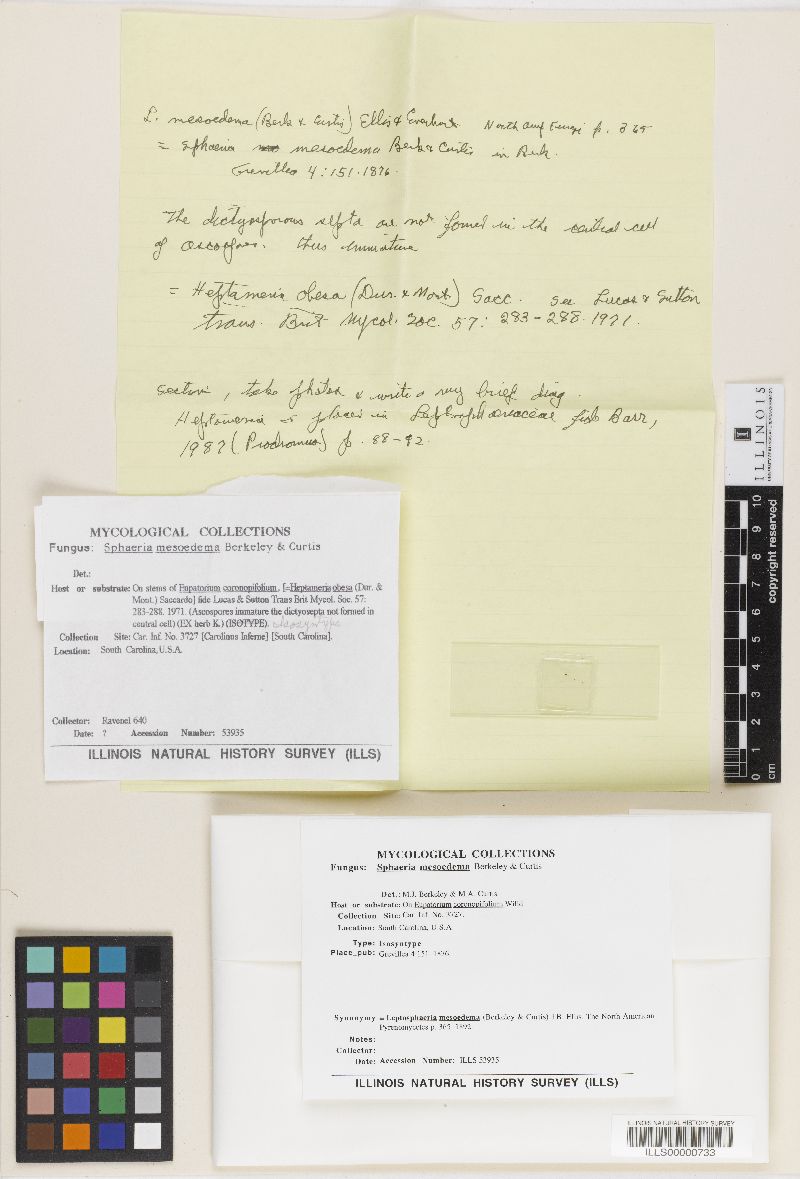 L. mesoedema (Berk & Curtis) Ellis & Everhart North Am Fungi p. 365
= Sphaeria mesoedema Berk & Curtis in Berk.
Grevillea 4:151.1876.
The dictyosporous septa are not formed in the central cell
of ascospores. thus immature
= Heptameria obesa (Dur. & Mont.) Sacc. see Lucas & Sutton
trans. Brit Mycol. Soc. 57: 283-288. 1971.
section, take photos & write a very brief diag.
Heptameria is placed in Leptosphaeriaceae fide Barr,
1987 (Prodromus) p. 88-92.
ILLINOIS
copyright reserved
0 1 2 3 4 5 6 7 8 9 10
cm
MYCOLOGICAL COLLECTIONS
Fungus: Sphaeria mesoedema Berkeley & Curtis
Det.:
Host or substrate: On stems of Eupatorium coronopifolium, [=Heptameria obesa (Dur. &
Mont.) Saccardo] fide Lucas & Sutton Trans Brit Mycol. Soc. 57:
283-288. 1971. (Ascospores immature the dictyosepta not formed in
central cell) (EX herb K.) (ISOTYPE). isosyntype
Collection Site: Car. Inf. No. 3727 [Carolians Inferne] [South Carolina].
Location: South Carolina, U.S.A.
Collector: Ravenel 640
Date: ? Accession Number: 53935
ILLINOIS NATURAL HISTORY SURVEY (ILLS)
MYCOLOGICAL COLLECTIONS
Fungus: Sphaeria mesoedema Berkeley & Curtis
Det.: M.J. Berkeley & M.A. Curtis
Host or substrate: On Eupatorium coronopifolium Willd
Collection Site: Car. Inf. No. 3727.
Location: South Carolina, U.S.A.
Type: Isosyntype
Place_pub: Grevillea 4:151. 1876.
Synonymy = Leptosphaeria mesoedema (Berkeley & Curtis) J.B. Ellis. The North American
Pyrenomycetes p. 365. 1892.
Notes:
Collector:
Date: Accession Number: ILLS 53935
ILLINOIS NATURAL HISTORY SURVEY (ILLS)
ILLINOIS NATURAL HISTORY SURVEY
ILLS00000733